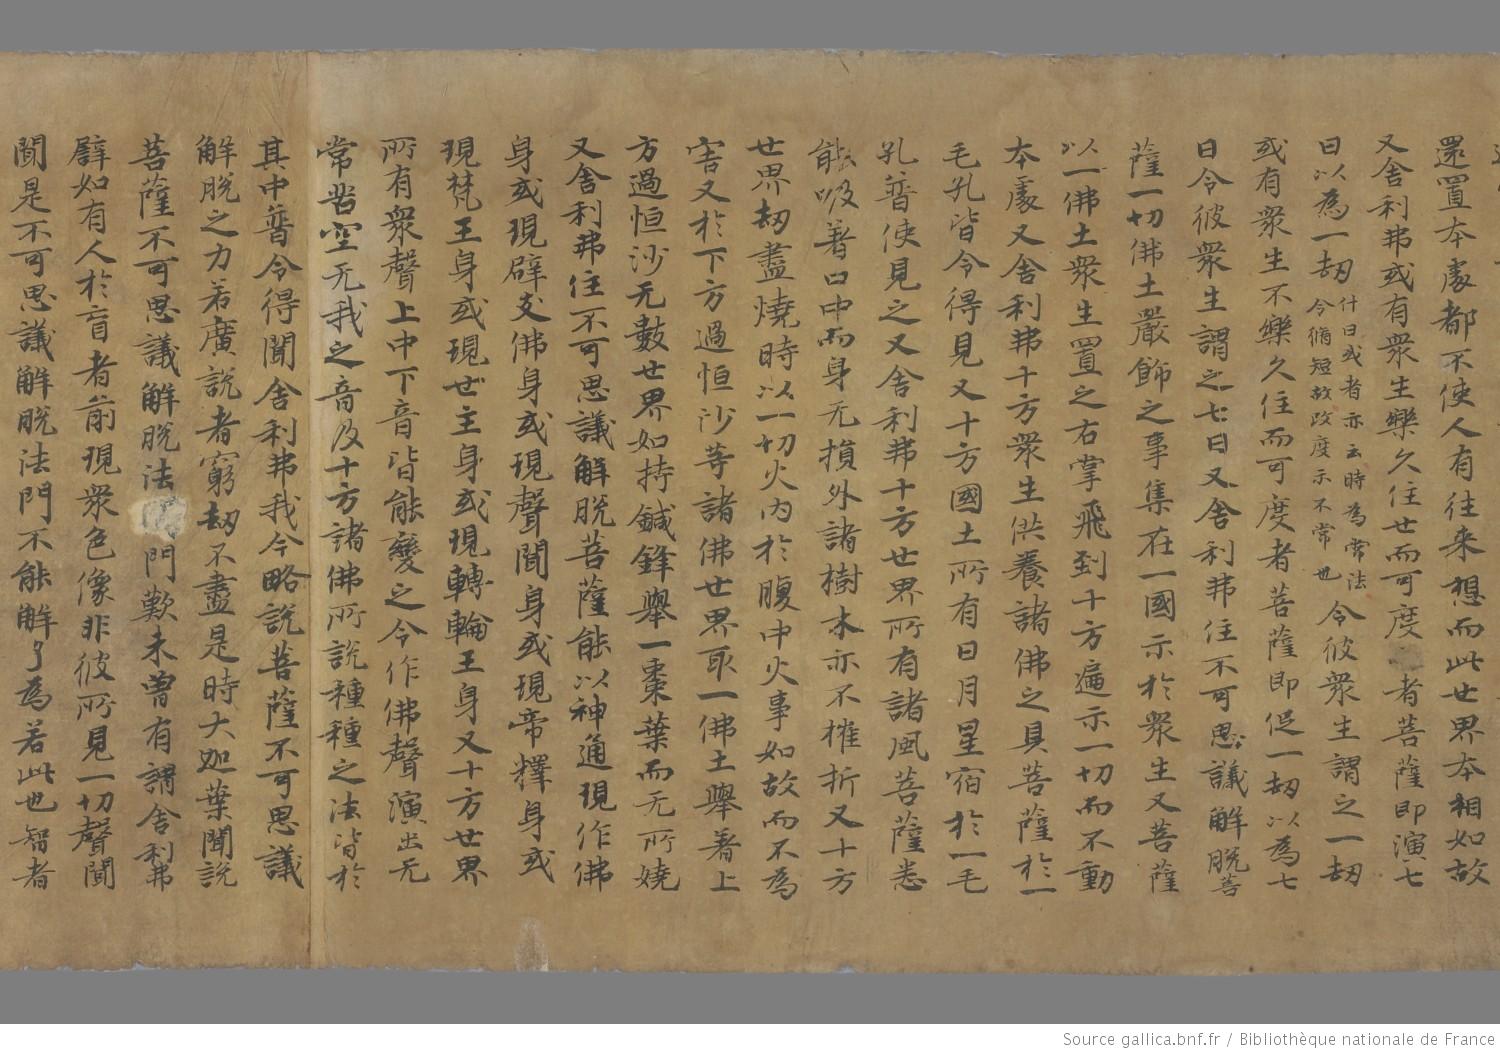 還置本處都不使人有往来想而此世界本相如故
又舍利弗或有衆生樂久住世而可度者菩薩即演七
日以為一劫什曰或者亦云時為常法令脩短故改度示不常也令彼衆生謂之一劫
或有衆生不樂久住而可度者菩薩即促一劫以為七
日令彼衆生謂之七日又舍利弗住不可思議解脱菩
薩一切佛土嚴飾之事集在一國示於衆生又菩薩
以一佛土衆生置之右掌飛到十方遍示一切而不動
本處又舍利弗十方衆生供養諸佛之具菩薩於一
毛孔皆令得見又十方國土所有日月星宿於一毛
孔普使見之又舍利弗十方世界所有諸風菩薩悉
能吸著口中而身无損外諸樹木亦不摧折又十方
世界劫盡燒時以一切火内於腹中火事如故而不為
害又於下方過恒沙等諸佛世界取一佛土舉著上
方過恒沙无數世界如持鍼鋒舉一棗葉而无所嬈
又舍利弗住不可思議解脱菩薩能以神通現作佛
身或現辟支佛身或現聲聞身或現帝釋身或
現梵王身或現世主身或現轉輪王身又十方世界
所有衆聲上中下音皆能變之令作佛聲演出无
常苦空无我之音及十方諸佛所説種種之法皆於
其中普令得聞舍利弗我今略説菩薩不可思議
解脱之力若廣説者窮劫不盡是時大迦葉聞説
菩薩不可思議解脱法門歎未曾有謂舍利弗
譬如有人於盲者前現衆色像非彼所見一切聲聞
聞是不可思議解脱法門不能解了為若此也智者
Source gallica.bnf.fr / Bibliothèque nationale de France